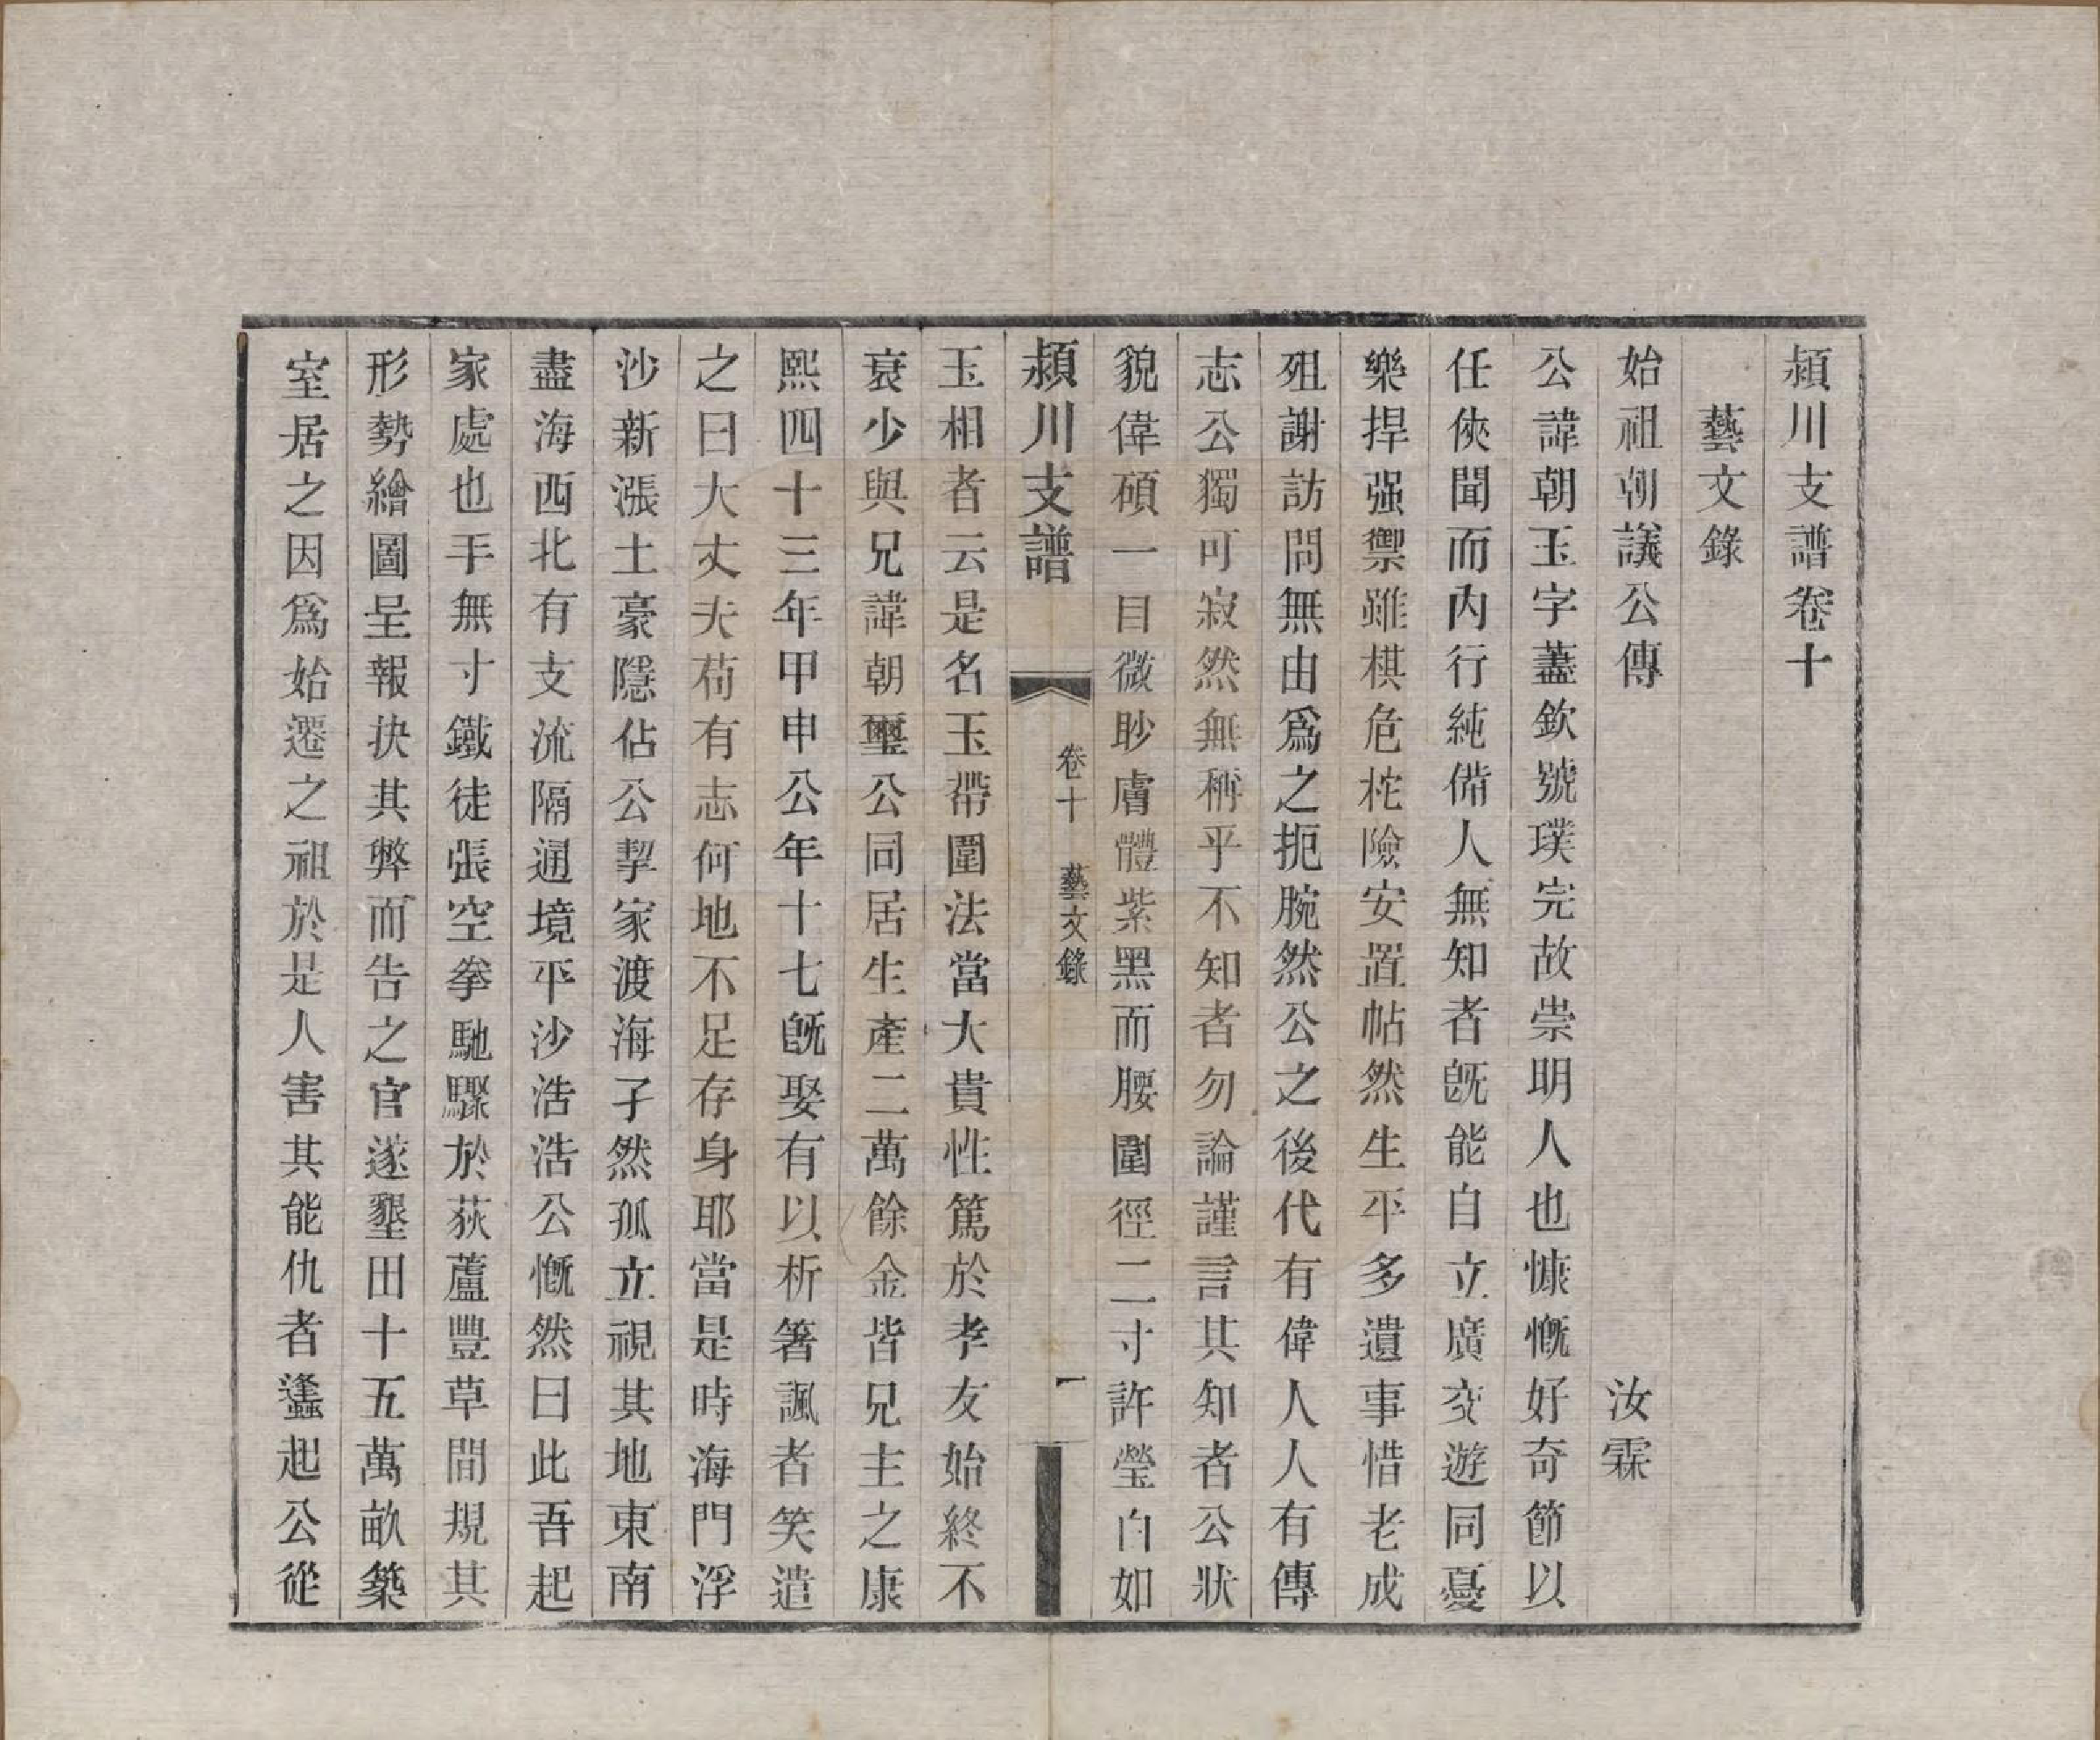 潁川支譜卷十
藝文錄
始祖朝議公傳 汝霖
公諱朝玉字藎欽號璞完故崇明人也慷慨好奇節以
任俠聞而内行純備人無知者旣能自立廣交遊同憂
樂捍强禦雖棋危柁險安置帖然生平多遺事惜老成
殂謝訪問無由爲之扼腕然公之後代有偉人人有傳
志公獨可寂然無稱乎不知者勿論謹言其知者公狀
貌偉碩一目微眇膚體紫黑而腰圍徑二寸許瑩白如
潁川支譜 卷十 藝文錄 一
玉相者云是名玉帶圍法當大貴性篤於孝友始終不
衰少與兄諱朝璽公同居生產二萬餘金皆兄主之康
熙四十三年甲申公年十七旣娶有以析箸諷者笑遣
之曰大丈夫苟有志何地不足存身耶當是時海門浮
沙新漲土豪隱佔公挈家渡海孑然孤立視其地東南
盡海西北有支流隔通境平沙浩浩公慨然曰此吾起
家處也手無寸鐵徒張空拳馳驟於荻蘆豐草間規其
形勢繪圖呈報抉其弊而告之官遂墾田十五萬畝築
室居之因爲始遷之祖於是人害其能仇者蠭起公從